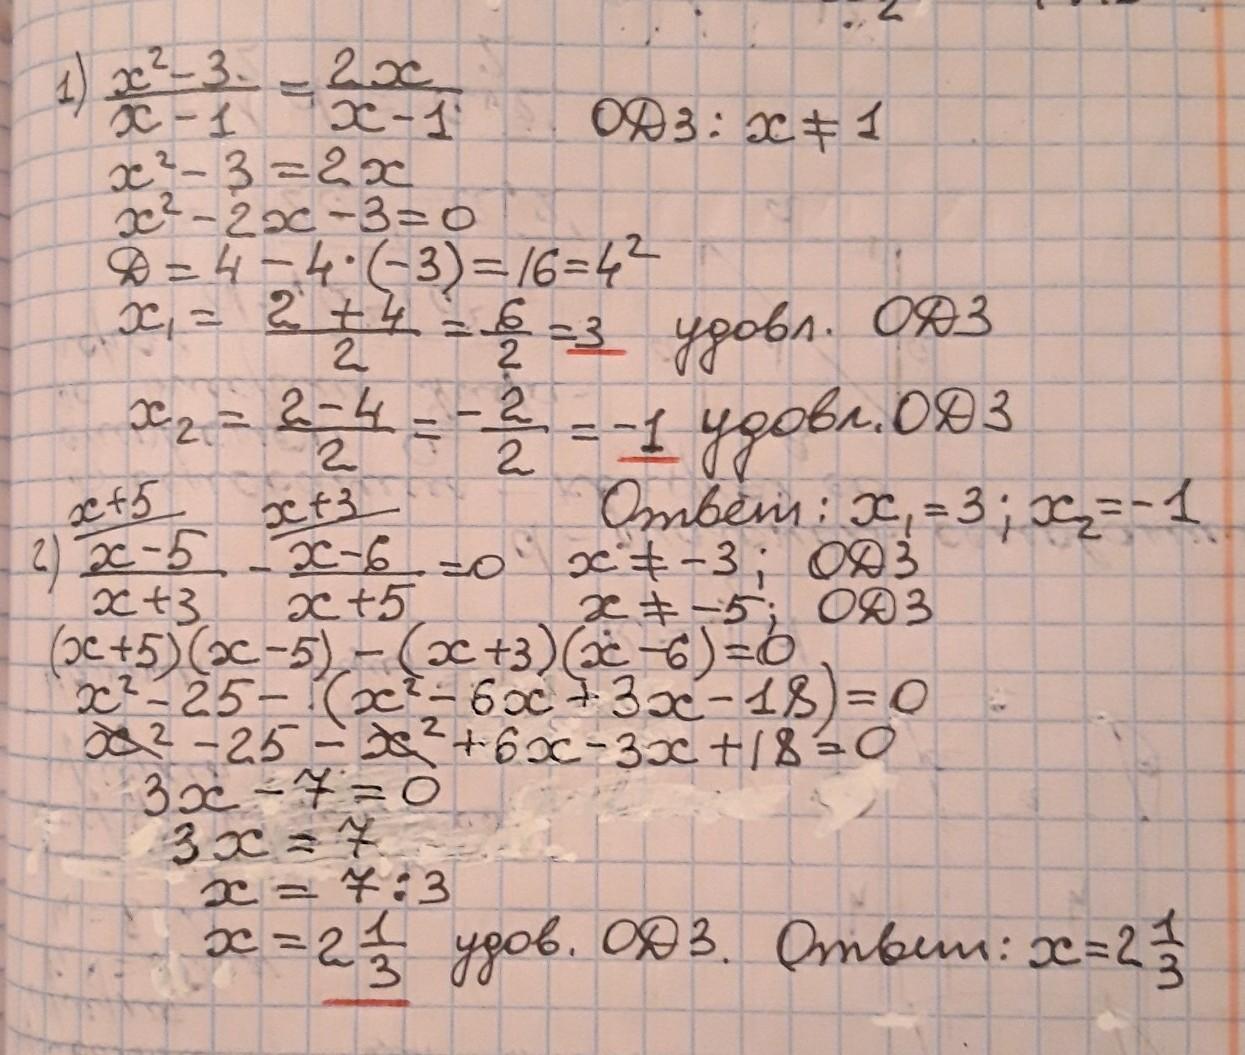 1) (x² - 3)/(x - 1) = 2x/(x - 1) ОДЗ: x ≠ 1
x² - 3 = 2x
x² - 2x - 3 = 0
Д = 4 - 4·(-3) = 16 = 4²
x₁ = (2 + 4)/2 = 6/2 = 3 удовл. ОДЗ
x₂ = (2 - 4)/2 = -2/2 = -1 удовл. ОДЗ
Ответ: x₁ = 3; x₂ = -1
x+5 x+3
2) (x - 5)/(x + 3) - (x - 6)/(x + 5) = 0 x ≠ -3; ОДЗ
x ≠ -5; ОДЗ
(x+5)(x-5) - (x+3)(x-6) = 0
x² - 25 - (x² - 6x + 3x - 18) = 0
x² - 25 - x² + 6x - 3x + 18 = 0
3x - 7 = 0
3x = 7
x = 7 : 3
x = 2 1/3 удов. ОДЗ. Ответ: x = 2 1/3